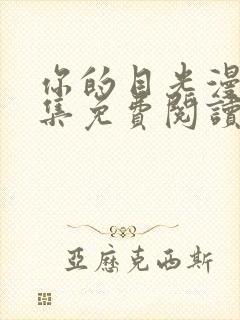 你的目光漫
集免費閱讀
亞歷克西斯